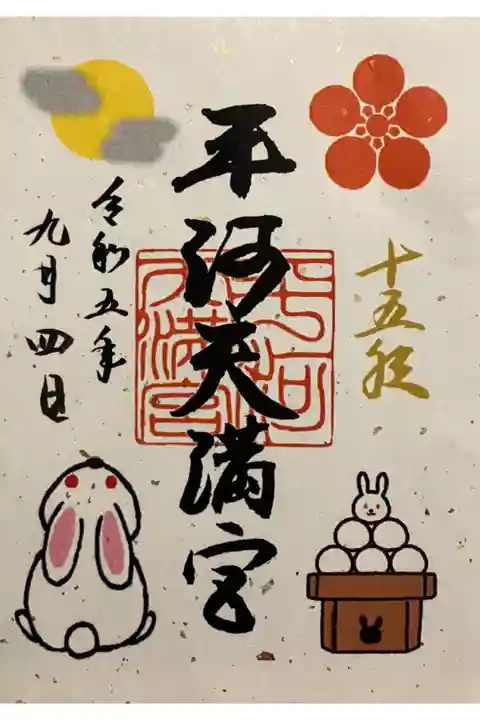 十五夜
平河天満宮
平河天満宮
令和五年
九月四日